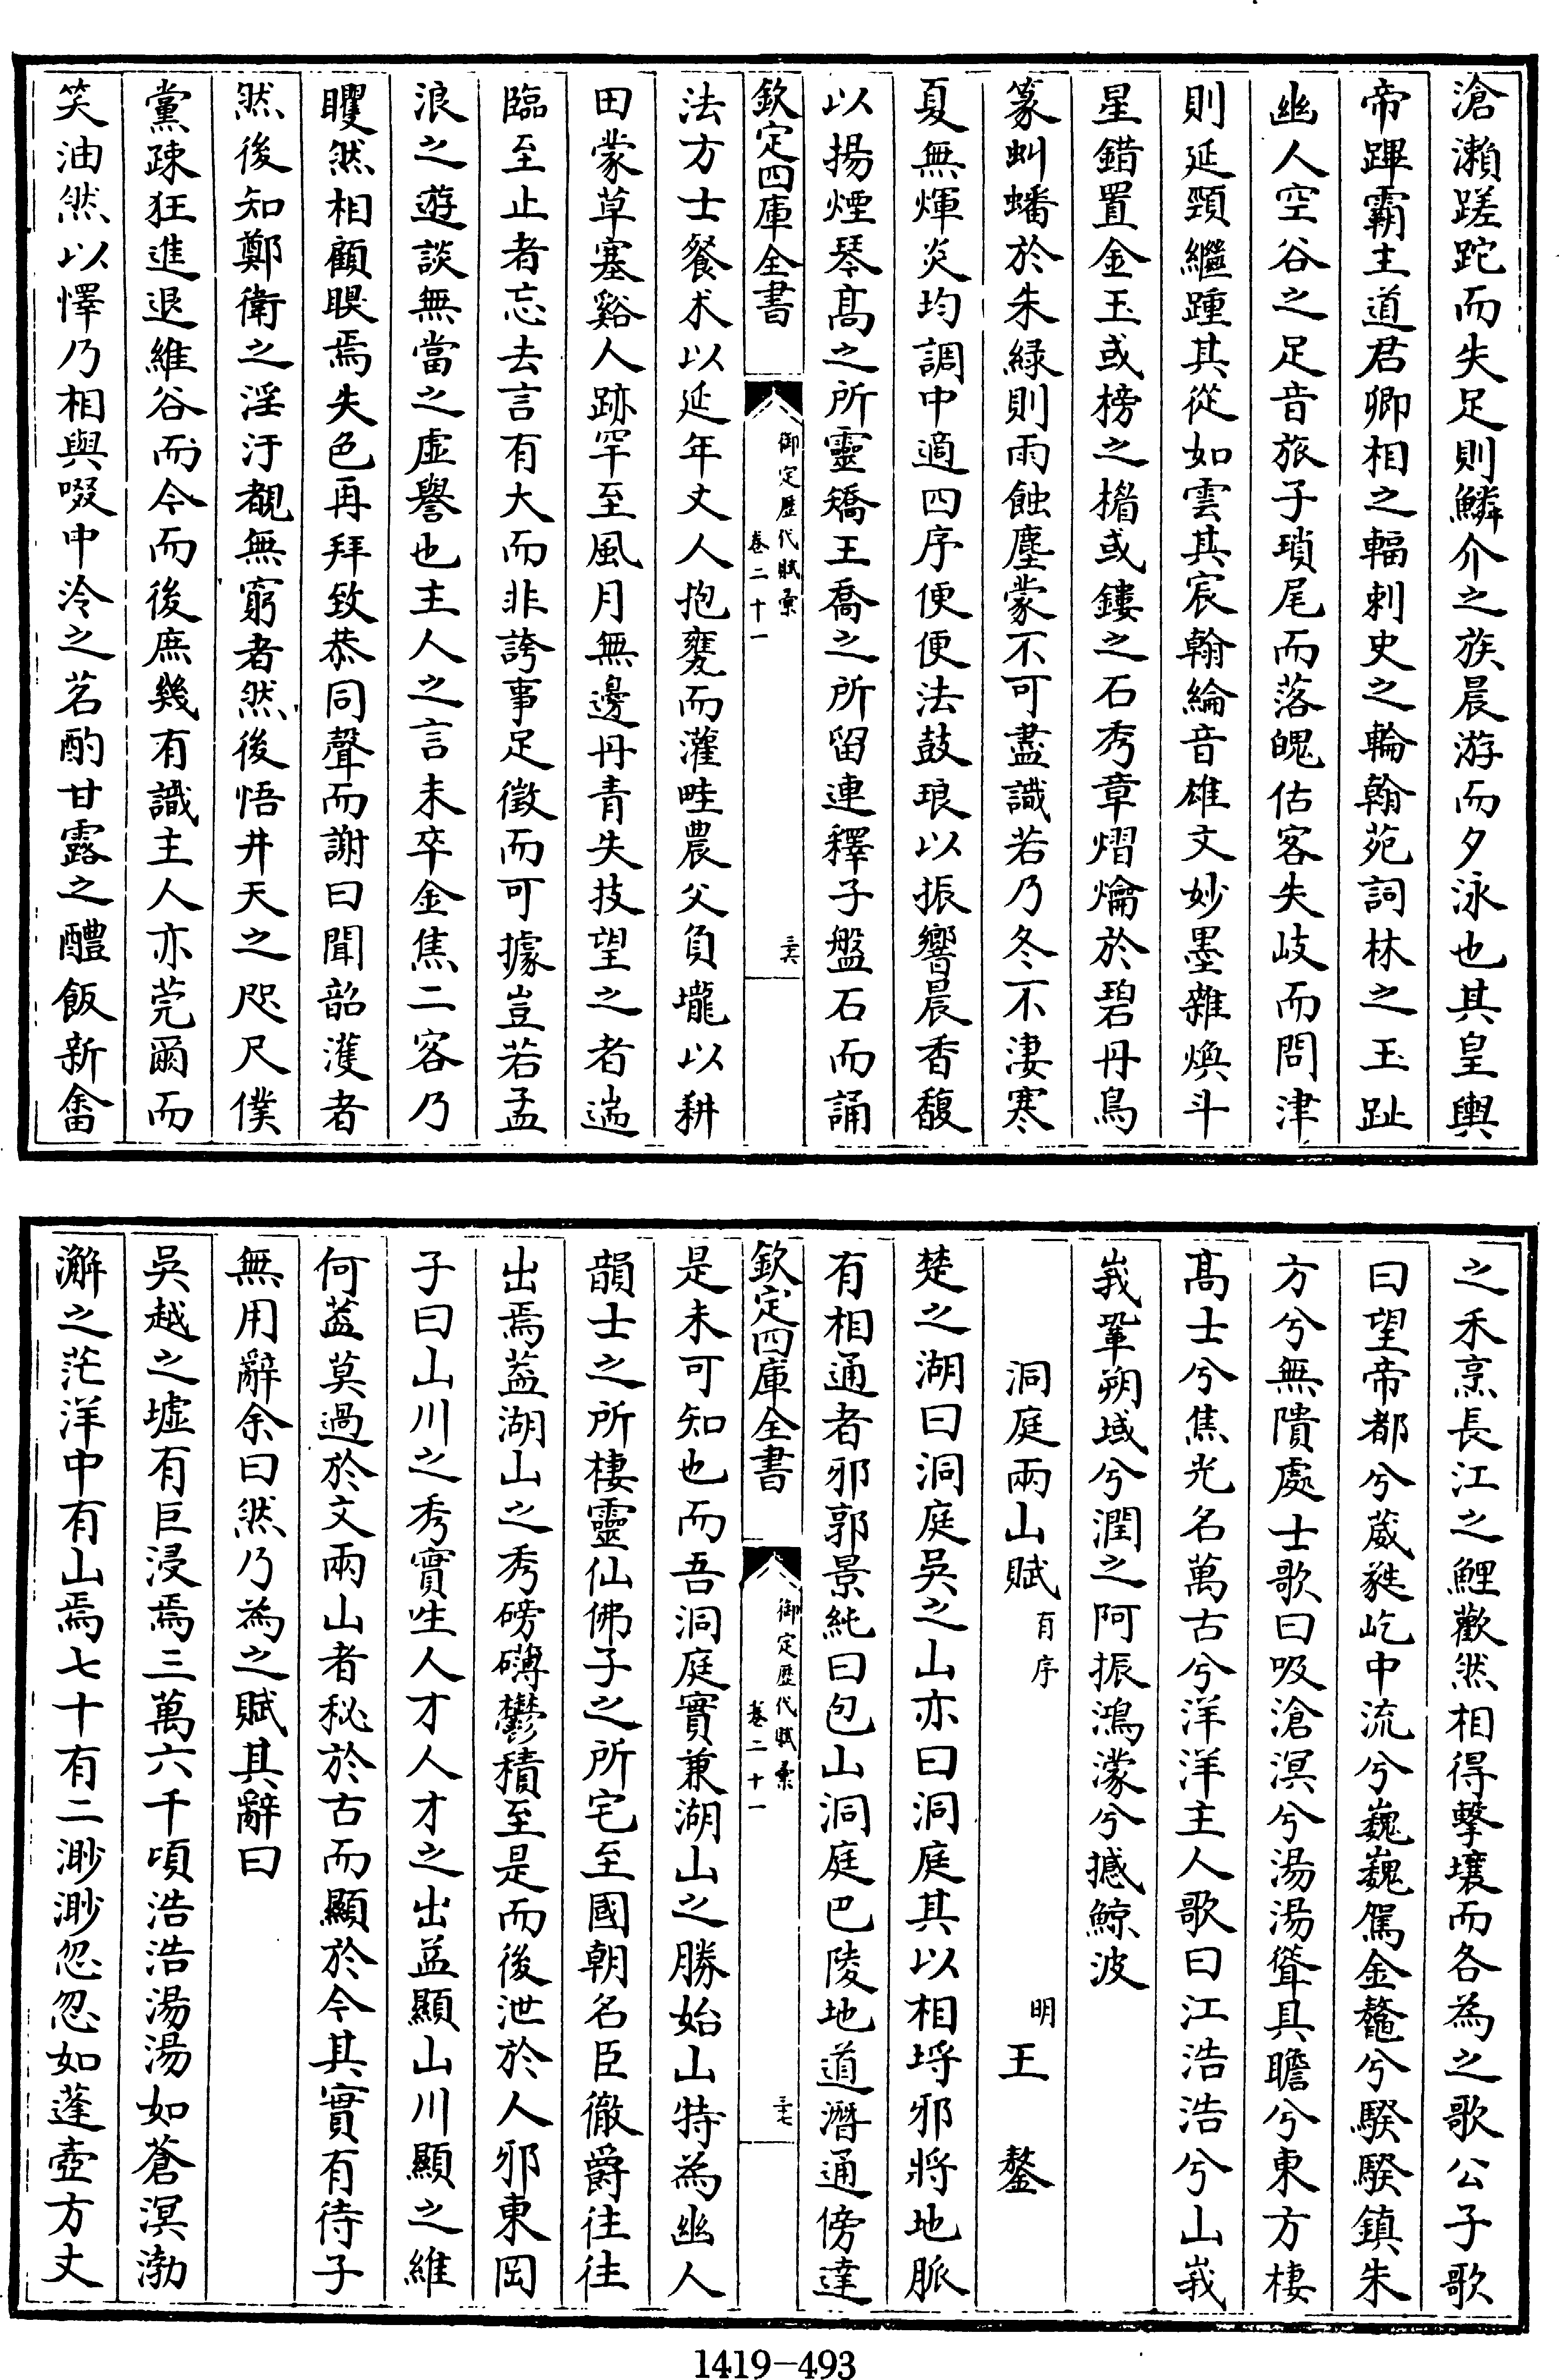 滄瀨蹉跎而失足則鱗介之族晨游而夕泳也其皇輿
帝蹕霸主道君卿相之輻刺史之輪翰苑詞林之玉趾
幽人空谷之足音旅子瑣尾而落魄估客失岐而問津
則延頸繼踵其從如雲其宸翰綸音雄文妙墨雜煥斗
星錯置金玉或榜之楣或鏤之石秀章熠爚於碧丹鳥
篆虯蟠於朱緑則雨蝕塵蒙不可盡識若乃冬不淒寒
夏無煇炎均調中適四序便便法鼓琅以振響晨香馥
以揚煙琴高之所靈矯王喬之所留連釋子盤石而誦
欽定四庫全書
御定歴代賦彚
卷二十一
三六
法方士餐朮以延年丈人抱甕而灌畦農父負壠以耕
田蒙草塞谿人跡罕至風月無邊丹青失技望之者遄
臨至止者忘去言有大而非誇事足徵而可據豈若孟
浪之遊談無當之虛譽也主人之言未卒金焦二客乃
矍然相顧瞁焉失色再拜致恭同聲而謝曰聞韶濩者
然後知鄭衛之淫汙覩無窮者然後悟井天之咫尺僕
黨疎狂進退維谷而今而後庶幾有識主人亦莞爾而
笑油然以懌乃相與啜中泠之茗酌甘露之醴飯新畬
之禾烹長江之鯉歡然相得擊壤而各為之歌公子歌
曰望帝都兮葳蕤屹中流兮巍巍駕金鼇兮騤騤鎮朱
方兮無隤處士歌曰吸滄溟兮湯湯聳具瞻兮東方棲
高士兮焦光名萬古兮洋洋主人歌曰江浩浩兮山峩
峩鞏朔域兮潤之阿振鴻濛兮撼鯨波
洞庭兩山賦 有序 明 王鏊
楚之湖曰洞庭吳之山亦曰洞庭其以相埒邪將地脈
有相通者邪郭景純曰包山洞庭巴陵地道潛通傍達
欽定四庫全書
御定歴代賦彚
卷二十一
三七
是未可知也而吾洞庭實兼湖山之勝始山特為幽人
韻士之所棲靈仙佛子之所宅至國朝名臣徹爵往往
出焉葢湖山之秀磅礴鬱積至是而後泄於人邪東岡
子曰山川之秀實生人才人才之出益顯山川顯之維
何葢莫過於文兩山者秘於古而顯於今其實有待子
無用辭余曰然乃為之賦其辭曰
吳越之墟有巨浸焉三萬六千頃浩浩湯湯如蒼溟渤
澥之茫洋中有山焉七十有二渺渺忽忽如蓬壺方丈
1419-493